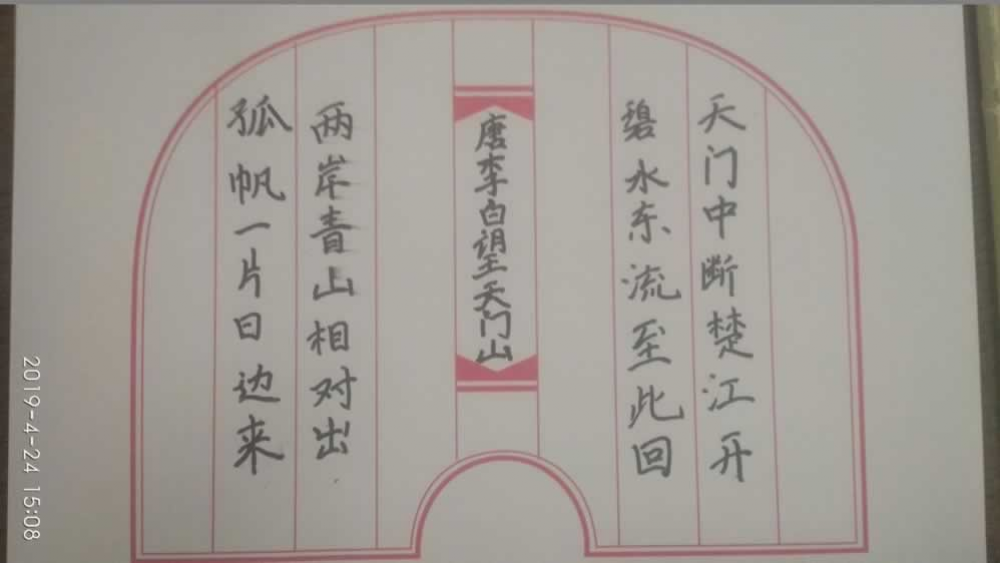 天门中断楚江开
碧水东流至此回
唐李白望天门山
两岸青山相对出
孤帆一片日边来
2019-4-24 15:08